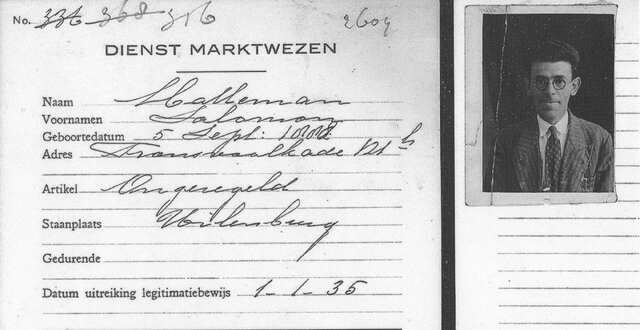 No. 336 368 316 2609
DIENST MARKTWEZEN
Naam Malleman
Voornamen Salomon
Geboortedatum 5 Sept:
Adres Transvaalkade 121 h
Artikel Ongeregeld
Staanplaats Uilenburg
Gedurende
Datum uitreiking legitimatiebewijs 1-1-35